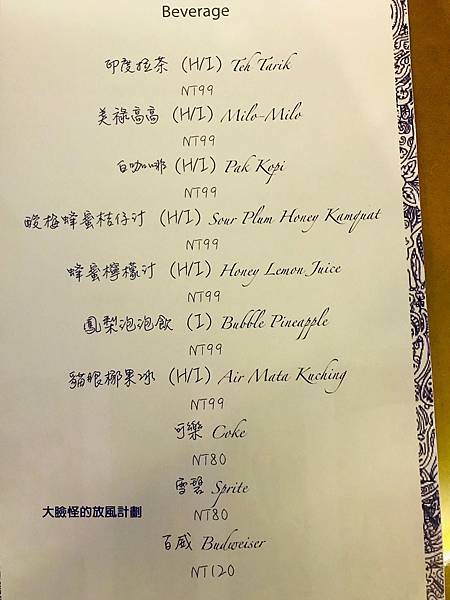 Beverage
印度拉茶 (H/I) Teh Tarik
NT99
美祿高高 (H/I) Milo-Milo
NT99
白咖啡 (H/I) Pak Kopi
NT99
酸梅蜂蜜桔仔汁 (H/I) Sour Plum Honey Kamquat
NT99
蜂蜜檸檬汁 (H/I) Honey Lemon Juice
NT99
鳳梨泡泡飲 (I) Bubble Pineapple
NT99
貓眼椰果冰 (H/I) Air Mata Kuching
NT99
可樂 Coke
NT80
雪碧 Sprite
大臉怪的放風計劃
NT80
百威 Budweiser
NT120